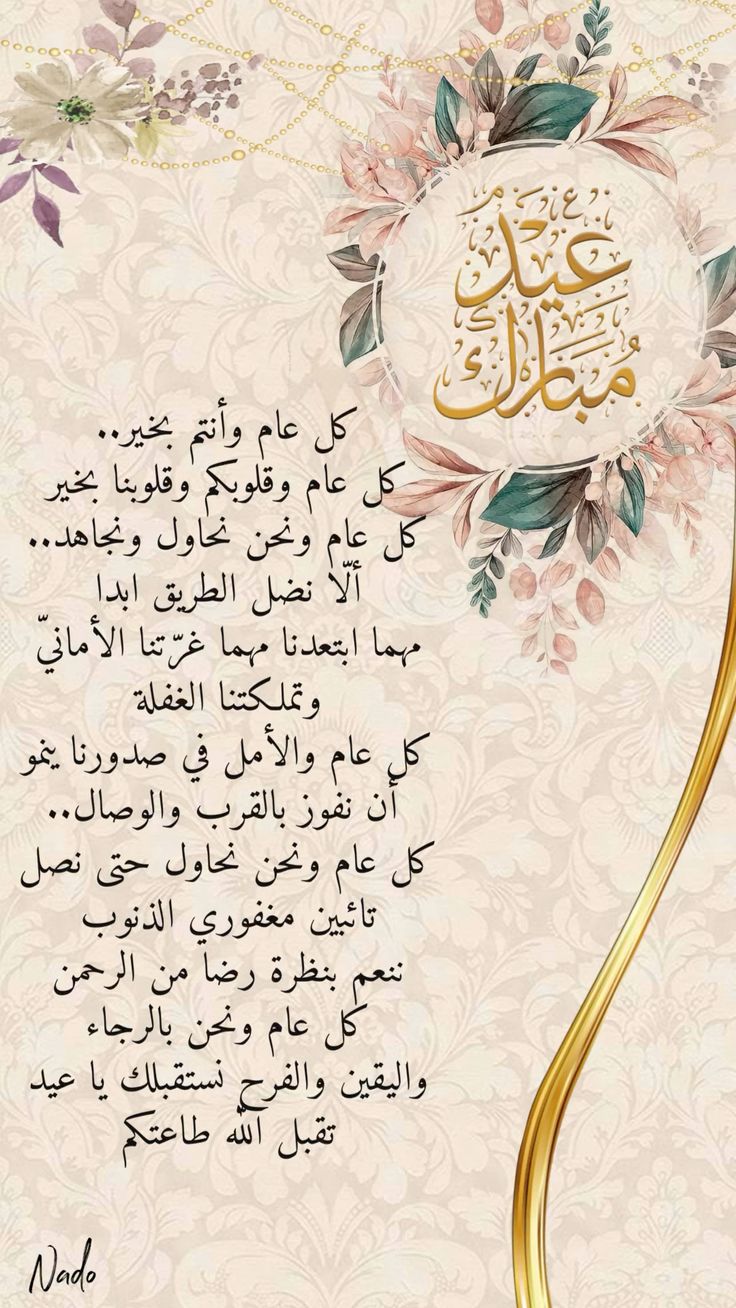 عيد
مبارك
كل عام وأنتم بخير..
كل عام وقلوبكم وقلوبنا بخير
كل عام ونحن نحاول ونجاهد..
ألّا نضل الطريق ابدا
مهما ابتعدنا مهما غرّتنا الأمانيّ
وتملكتنا الغفلة
كل عام والأمل في صدورنا ينمو
أن نفوز بالقرب والوصال..
كل عام ونحن نحاول حتى نصل
تائبين مغفوري الذنوب
ننعم بنظرة رضا من الرحمن
كل عام ونحن بالرجاء
واليقين والفرح نستقبلك يا عيد
تقبل الله طاعتكم
Nado